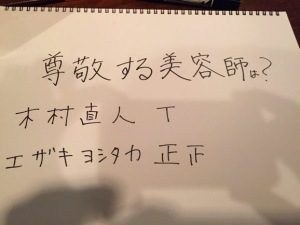 尊敬する美容師は?
木村直人 T
エザキヨシタカ 正正